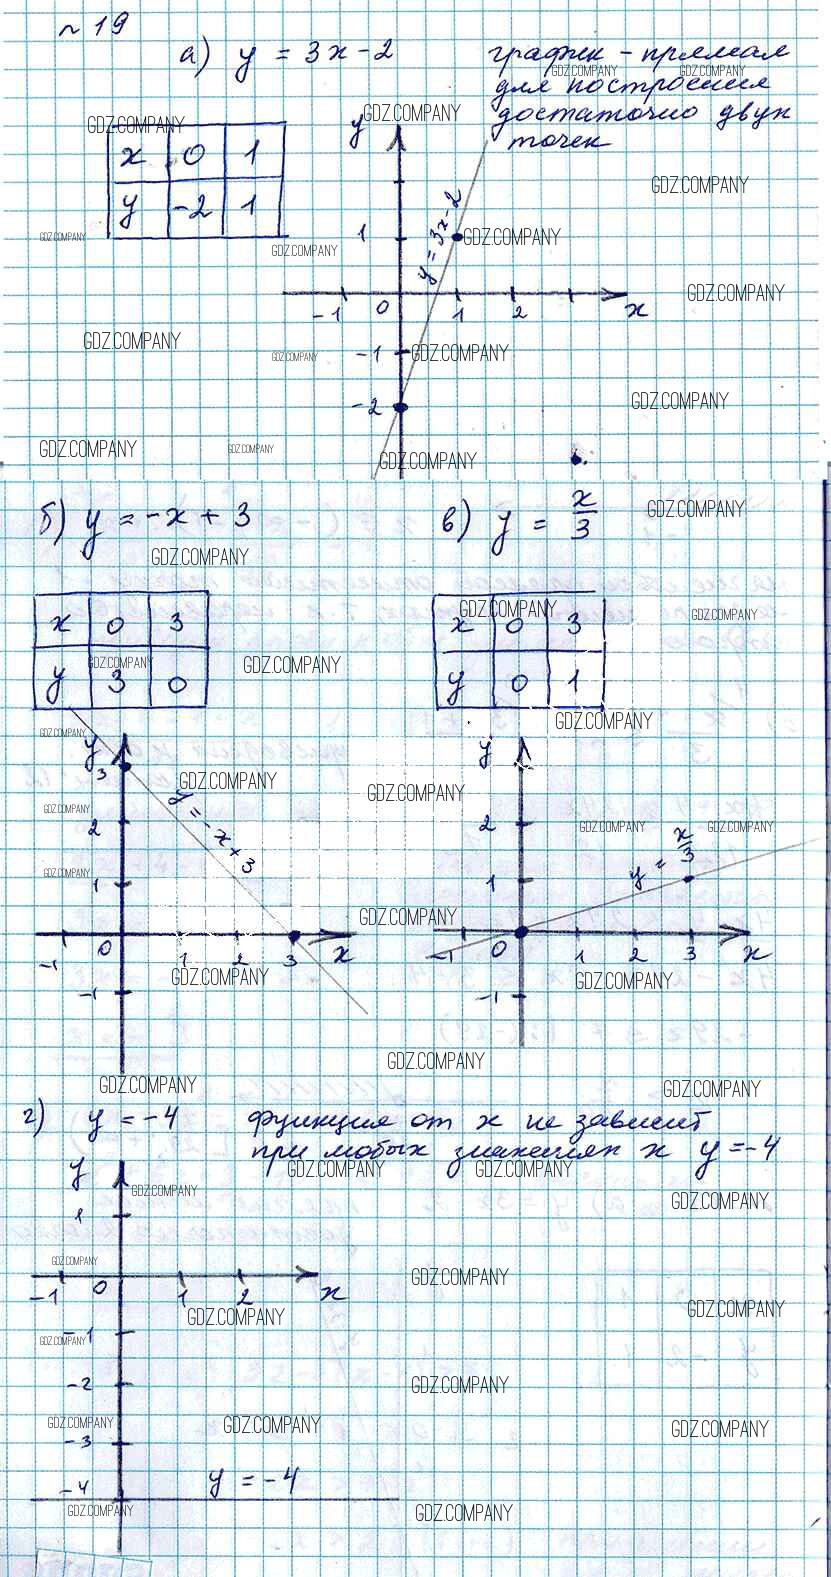 № 19
а) y = 3x - 2 график - прямая
для построения
достаточно двух
точек
x 0 1
y -2 1
y
1
y = 3x - 2
-1 0 1 2 x
-1
-2
б) y = -x + 3 в) y = x/3
x 0 3
y 3 0
x 0 3
y 0 1
y
3
2
1
y = -x + 3
-1 0 1 2 3 x
-1
y
2
1
y = x/3
-1 0 1 2 3 x
-1
г) y = -4 функция от x не зависит
при любых значениях x y = -4
y
1
-1 0 1 2 x
-1
-2
-3
y = -4
-4
GDZ.COMPANY